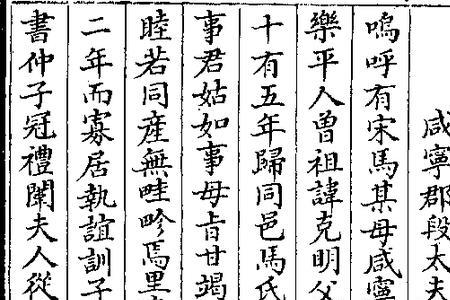 咸寧郡段太夫
嗚呼有宋馬某母咸寧
樂平人曾祖諱克明父
十有五年歸同邑馬氏
事君姑如事母旨甘竭
睦若同産無畦畛焉里
二年而寡居執誼訓子
書仲子冠禮闈夫人從